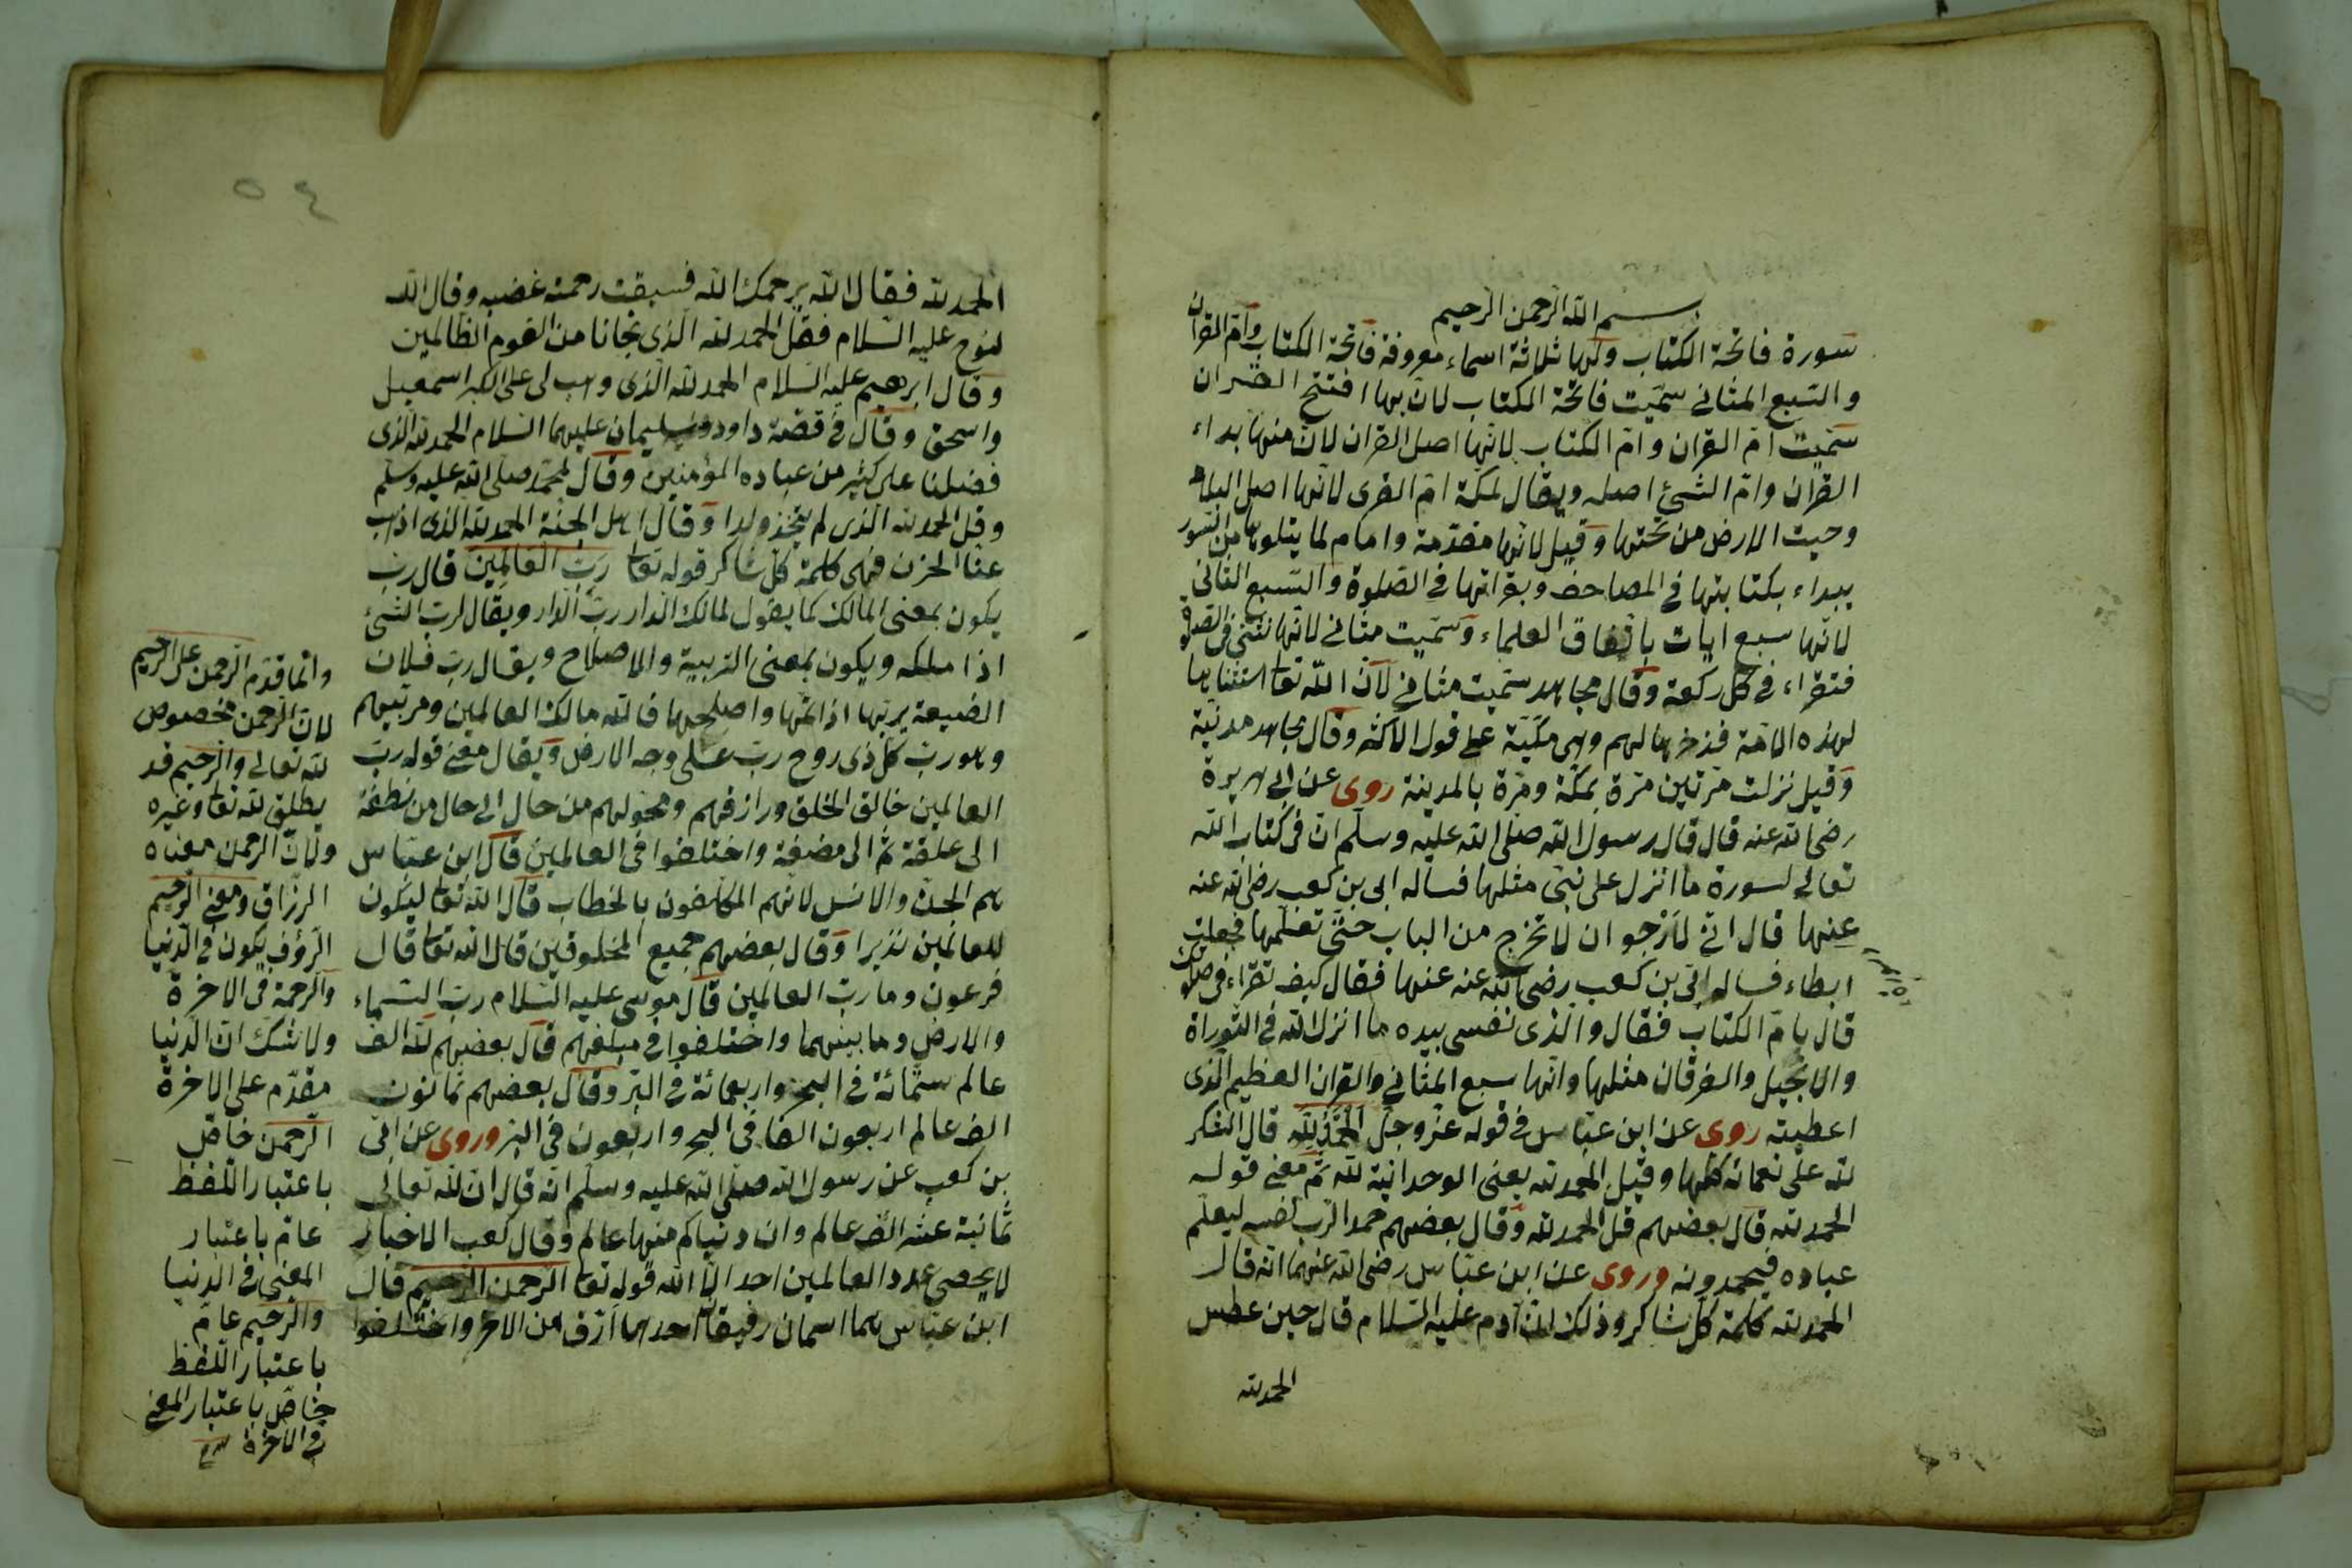 بسم الله الرحمن الرحيم
سورة فاتحة الكتاب ولها ثلاثة اسماء معروفة فاتحة الكتاب وام القران
والسبع المثانى سميت فاتحة الكتاب لان بها افتتح القران
سميت ام القران وام الكتاب لانها اصل القران لان منها بداء
القران وام الشئ اصله ويقال لمكة ام القرى لانها اصل البلاد
وحيت الارض من تحتها وقيل لانها مقدمة وامام لما يتلوها من السور
يبداء بكتابتها فى المصاحف وبقراتها فى الصلوة والسبع الثانى
لانها سبع ايات باتفاق العلماء وسميت مثانى لانها تثنى فى الصلوة
فتقراء فى كل ركعة وقال مجاهد سميت مثانى لان الله تعا استثناها
لهذه الامة فذخرها لهم وهى مكية على قول الاكثر وقال مجاهد مدنية
وقيل نزلت مرتين مرة بمكة ومرة بالمدينة روى عن ابى هريرة
رضى الله عنه قال قال رسول الله صلى الله عليه وسلم ان فى كتاب الله
تعالى لسورة ما انزل على نبى مثلها فساله ابى بن كعب رضى الله عنه
عنها قال انى لارجو ان لا تخرج من الباب حتى تعلمها فجعلت
ابطاء فساله ابى بن كعب رضى الله عنه عنها فقال كيف تقراء فى صلوتك
قال بام الكتاب فقال والذى نفسى بيده ما انزل الله فى التوراة
والانجيل والفرقان مثلها وانها سبع المثانى والقران العظيم الذى
اعطيته روى عن ابن عباس فى قوله عز وجل الحمد لله قال الشكر
لله على نعمائه كلها وقيل الحمد لله يعنى الوحدانية لله ثم معنى قوله
الحمد لله قال بعضهم قل الحمد لله وقال بعضهم حمد الرب نفسه ليعلم
عباده فيحمدونه وروى عن ابن عباس رضى الله عنهما انه قال
الحمد لله كلمة كل شاكر وذلك ان آدم عليه السلام قال حين عطس
الحمد لله
٥٤
الحمد لله فقال الله يرحمك الله فسبقت رحمته غضبه وقال الله
لنوح عليه السلام فقل الحمد لله الذى نجانا من القوم الظالمين
وقال ابرهيم عليه السلام الحمد لله الذى وهب لى على الكبر اسمعيل
واسحق وقال فى قصة داود وسليمان عليهما السلام الحمد لله الذى
فضلنا على كثير من عباده المؤمنين وقال لمحمد صلى الله عليه وسلم
وقل الحمد لله الذى لم يتخذ ولدا وقال اهل الجنة الحمد لله الذى اذهب
عنا الحزن فهى كلمة كل شاكر قوله تعا رب العالمين قال رب
يكون بمعنى المالك كما يقول لمالك الدار رب الدار ويقال لرب الشئ
اذا ملكه ويكون بمعنى التربية والاصلاح ويقال رب فلان
الضيعة يربها اذا اتمها واصلحها فالله مالك العالمين ومربيهم
وهو رب كل ذى روح رب على وجه الارض ويقال معنى قوله رب
العالمين خالق الخلق ورازقهم ومحولهم من حال الى حال من نطفة
الى علقة ثم الى مضغة واختلفوا فى العالمين قال ابن عباس
هم الجن والانس لانهم المكلفون بالخطاب قال الله تعا ليكون
للعالمين نذيرا وقال بعضهم جميع المخلوقين قال الله تعا قال
فرعون وما رب العالمين قال موسى عليه السلام رب السماء
والارض وما بينهما واختلفوا فى مبلغهم قال بعضهم لله الف
عالم ستمائة فى البحر واربعمائة فى البر وقال بعضهم ثمانون
الف عالم اربعون الفا فى البحر واربعون فى البر وروى عن ابى
بن كعب عن رسول الله صلى الله عليه وسلم انه قال ان لله تعالى
ثمانية عشر الف عالم وان دنياكم منها عالم وقال كعب الاخبار
لا يحصى عدد العالمين احد الا الله قوله تعا الرحمن الرحيم قال
ابن عباس هما اسمان رفيقان احدهما ارق من الاخر واختلفوا
وانما قدم الرحمن على الرحيم
لان الرحمن مخصوص
لله تعالى والرحيم قد
يطلق لله تعا وغيره
ولان الرحمن معناه
الرزاق ومعنى الرحيم
الرؤف يكون فى الدنيا
والرحمة فى الاخرة
ولا شك ان الدنيا
مقدم على الاخرة
الرحمن خاص
باعتبار اللفظ
عام باعتبار
المعنى فى الدنيا
والرحيم عام
باعتبار اللفظ
خاص باعتبار المعنى
فى الاخرة